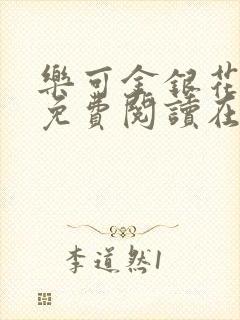 樂可金銀花
免費閱讀在
李道然1